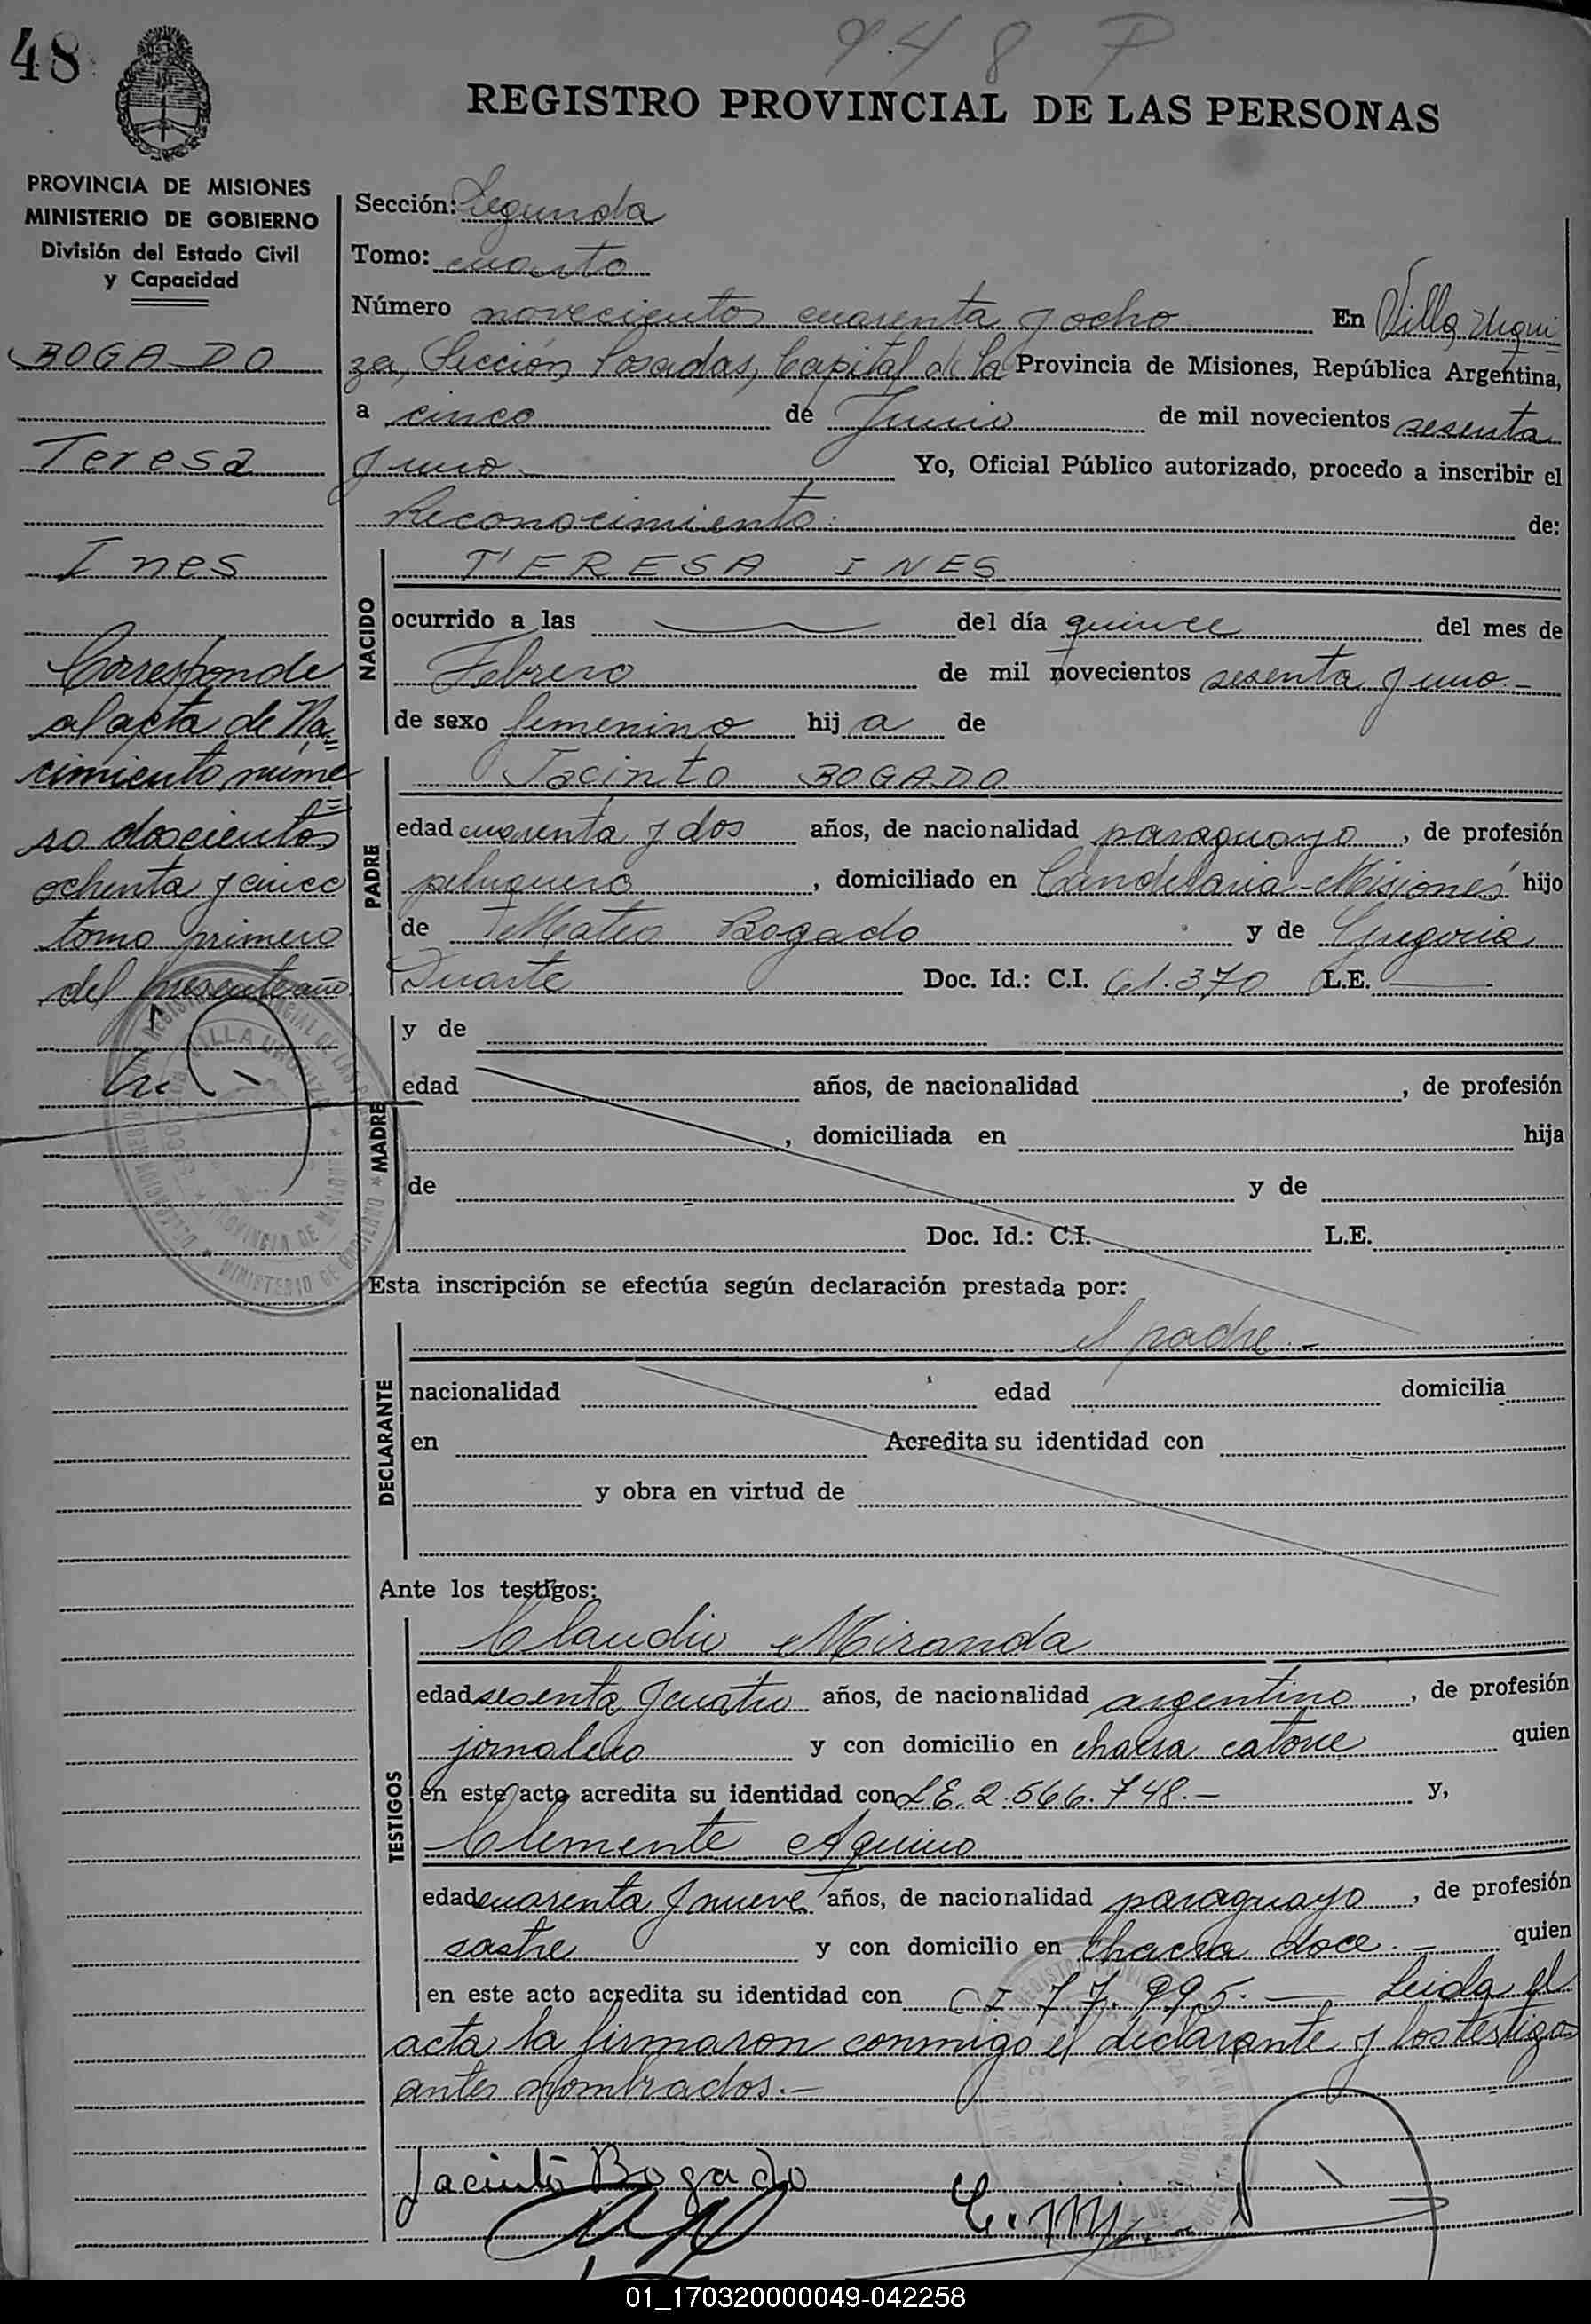 48
948 P
REGISTRO PROVINCIAL DE LAS PERSONAS
PROVINCIA DE MISIONES
MINISTERIO DE GOBIERNO
División del Estado Civil
y Capacidad
BOGADO
Teresa
Ines
Corresponde
al acta de Na=
cimiento núme=
ro doscientos
ochenta y cinco
tomo primero
del presente año
Sección: Segunda
Tomo: cuarto
Número novecientos cuarenta y ocho En Villa Urqui=
za, Sección Posadas, Capital de la Provincia de Misiones, República Argentina,
a cinco de Junio de mil novecientos sesenta
y uno Yo, Oficial Público autorizado, procedo a inscribir el
Reconocimiento: de:
NACIDO
TERESA INES
ocurrido a las del día quince del mes de
Febrero de mil novecientos sesenta y uno.-
de sexo femenino hij a de
PADRE
Jacinto BOGADO
edad cuarenta y dos años, de nacionalidad paraguayo, de profesión
peluquero, domiciliado en Candelaria-Misiones hijo
de Mateo Bogado y de Gregoria
Duarte Doc. Id.: C.I. 61.370 L.E.
MADRE
y de
edad años, de nacionalidad , de profesión
, domiciliada en hija
de y de
Doc. Id.: C.I. L.E.
Esta inscripción se efectúa según declaración prestada por:
DECLARANTE
el padre.-
nacionalidad edad domicilia
en Acredita su identidad con
y obra en virtud de
Ante los testigos:
TESTIGOS
Claudio Miranda
edad sesenta y cuatro años, de nacionalidad argentino, de profesión
jornalero y con domicilio en chacra catorce quien
en este acto acredita su identidad con L.E. 2.566.748.- y,
Clemente Aquino
edad cuarenta y nueve años, de nacionalidad paraguayo, de profesión
sastre y con domicilio en Chacra doce.- quien
en este acto acredita su identidad con C I 77.995.- Leida el
acta la firmaron conmigo el declarante y los testigos
antes nombrados.-
Jacinto Bogado
01_170320000049-042258